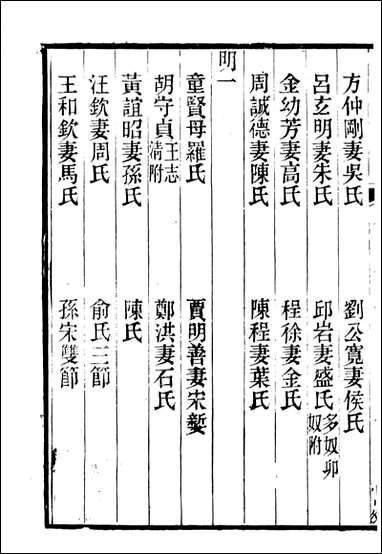 方仲剛妻吳氏 劉公寬妻侯氏
呂玄明妻朱氏 邱岩妻盛氏 多奴卯奴附
金幼芳妻高氏 程徐妻金氏
周誠德妻陳氏 陳程妻葉氏
明一
童賢母羅氏 賈明善妻宋媝
胡守貞 王志清附 鄭洪妻石氏
黃誼昭妻孫氏 陳氏
汪欽妻周氏 俞氏三節
王和欽妻馬氏 孫宋雙節